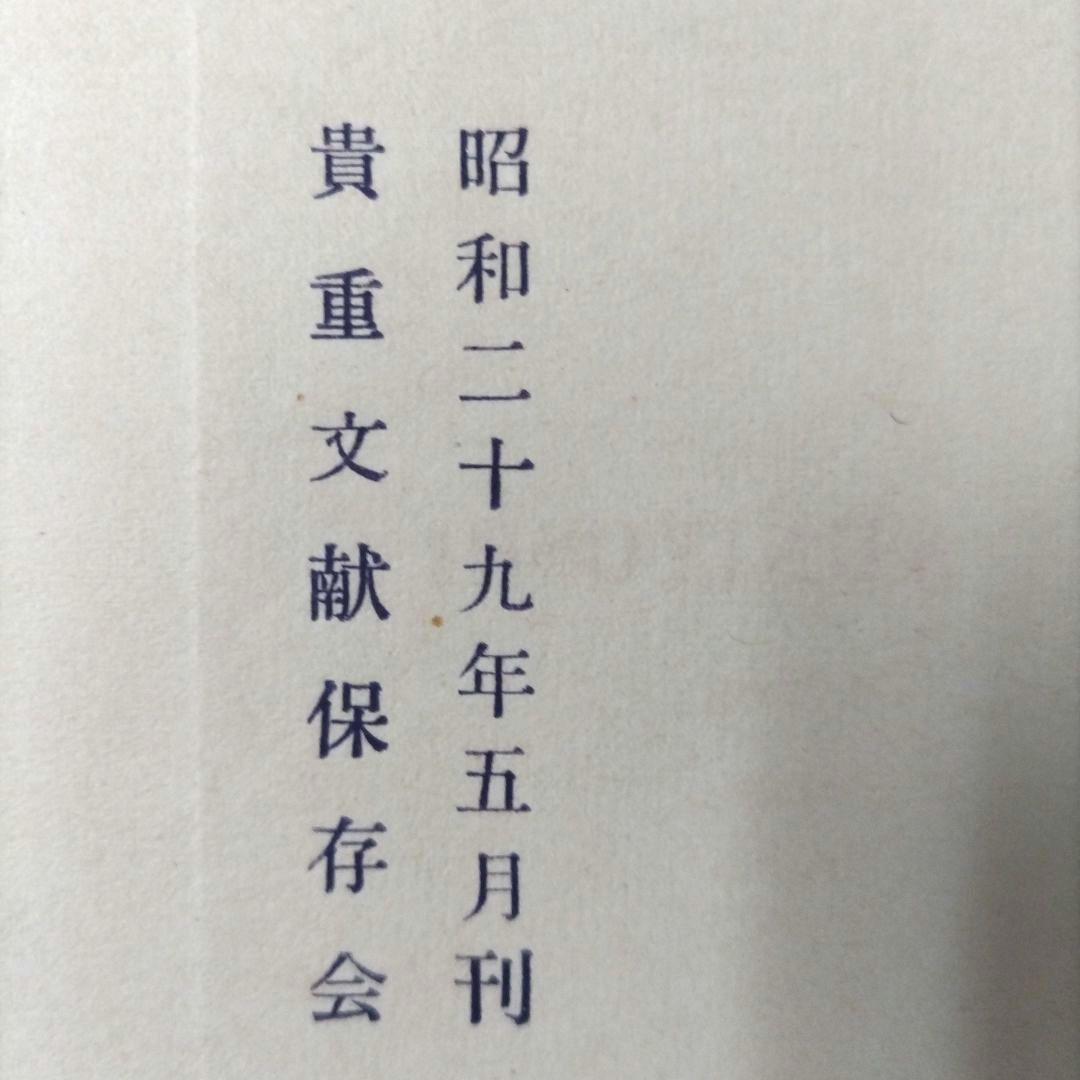 昭和二十九年五月刊
貴重文献保存会